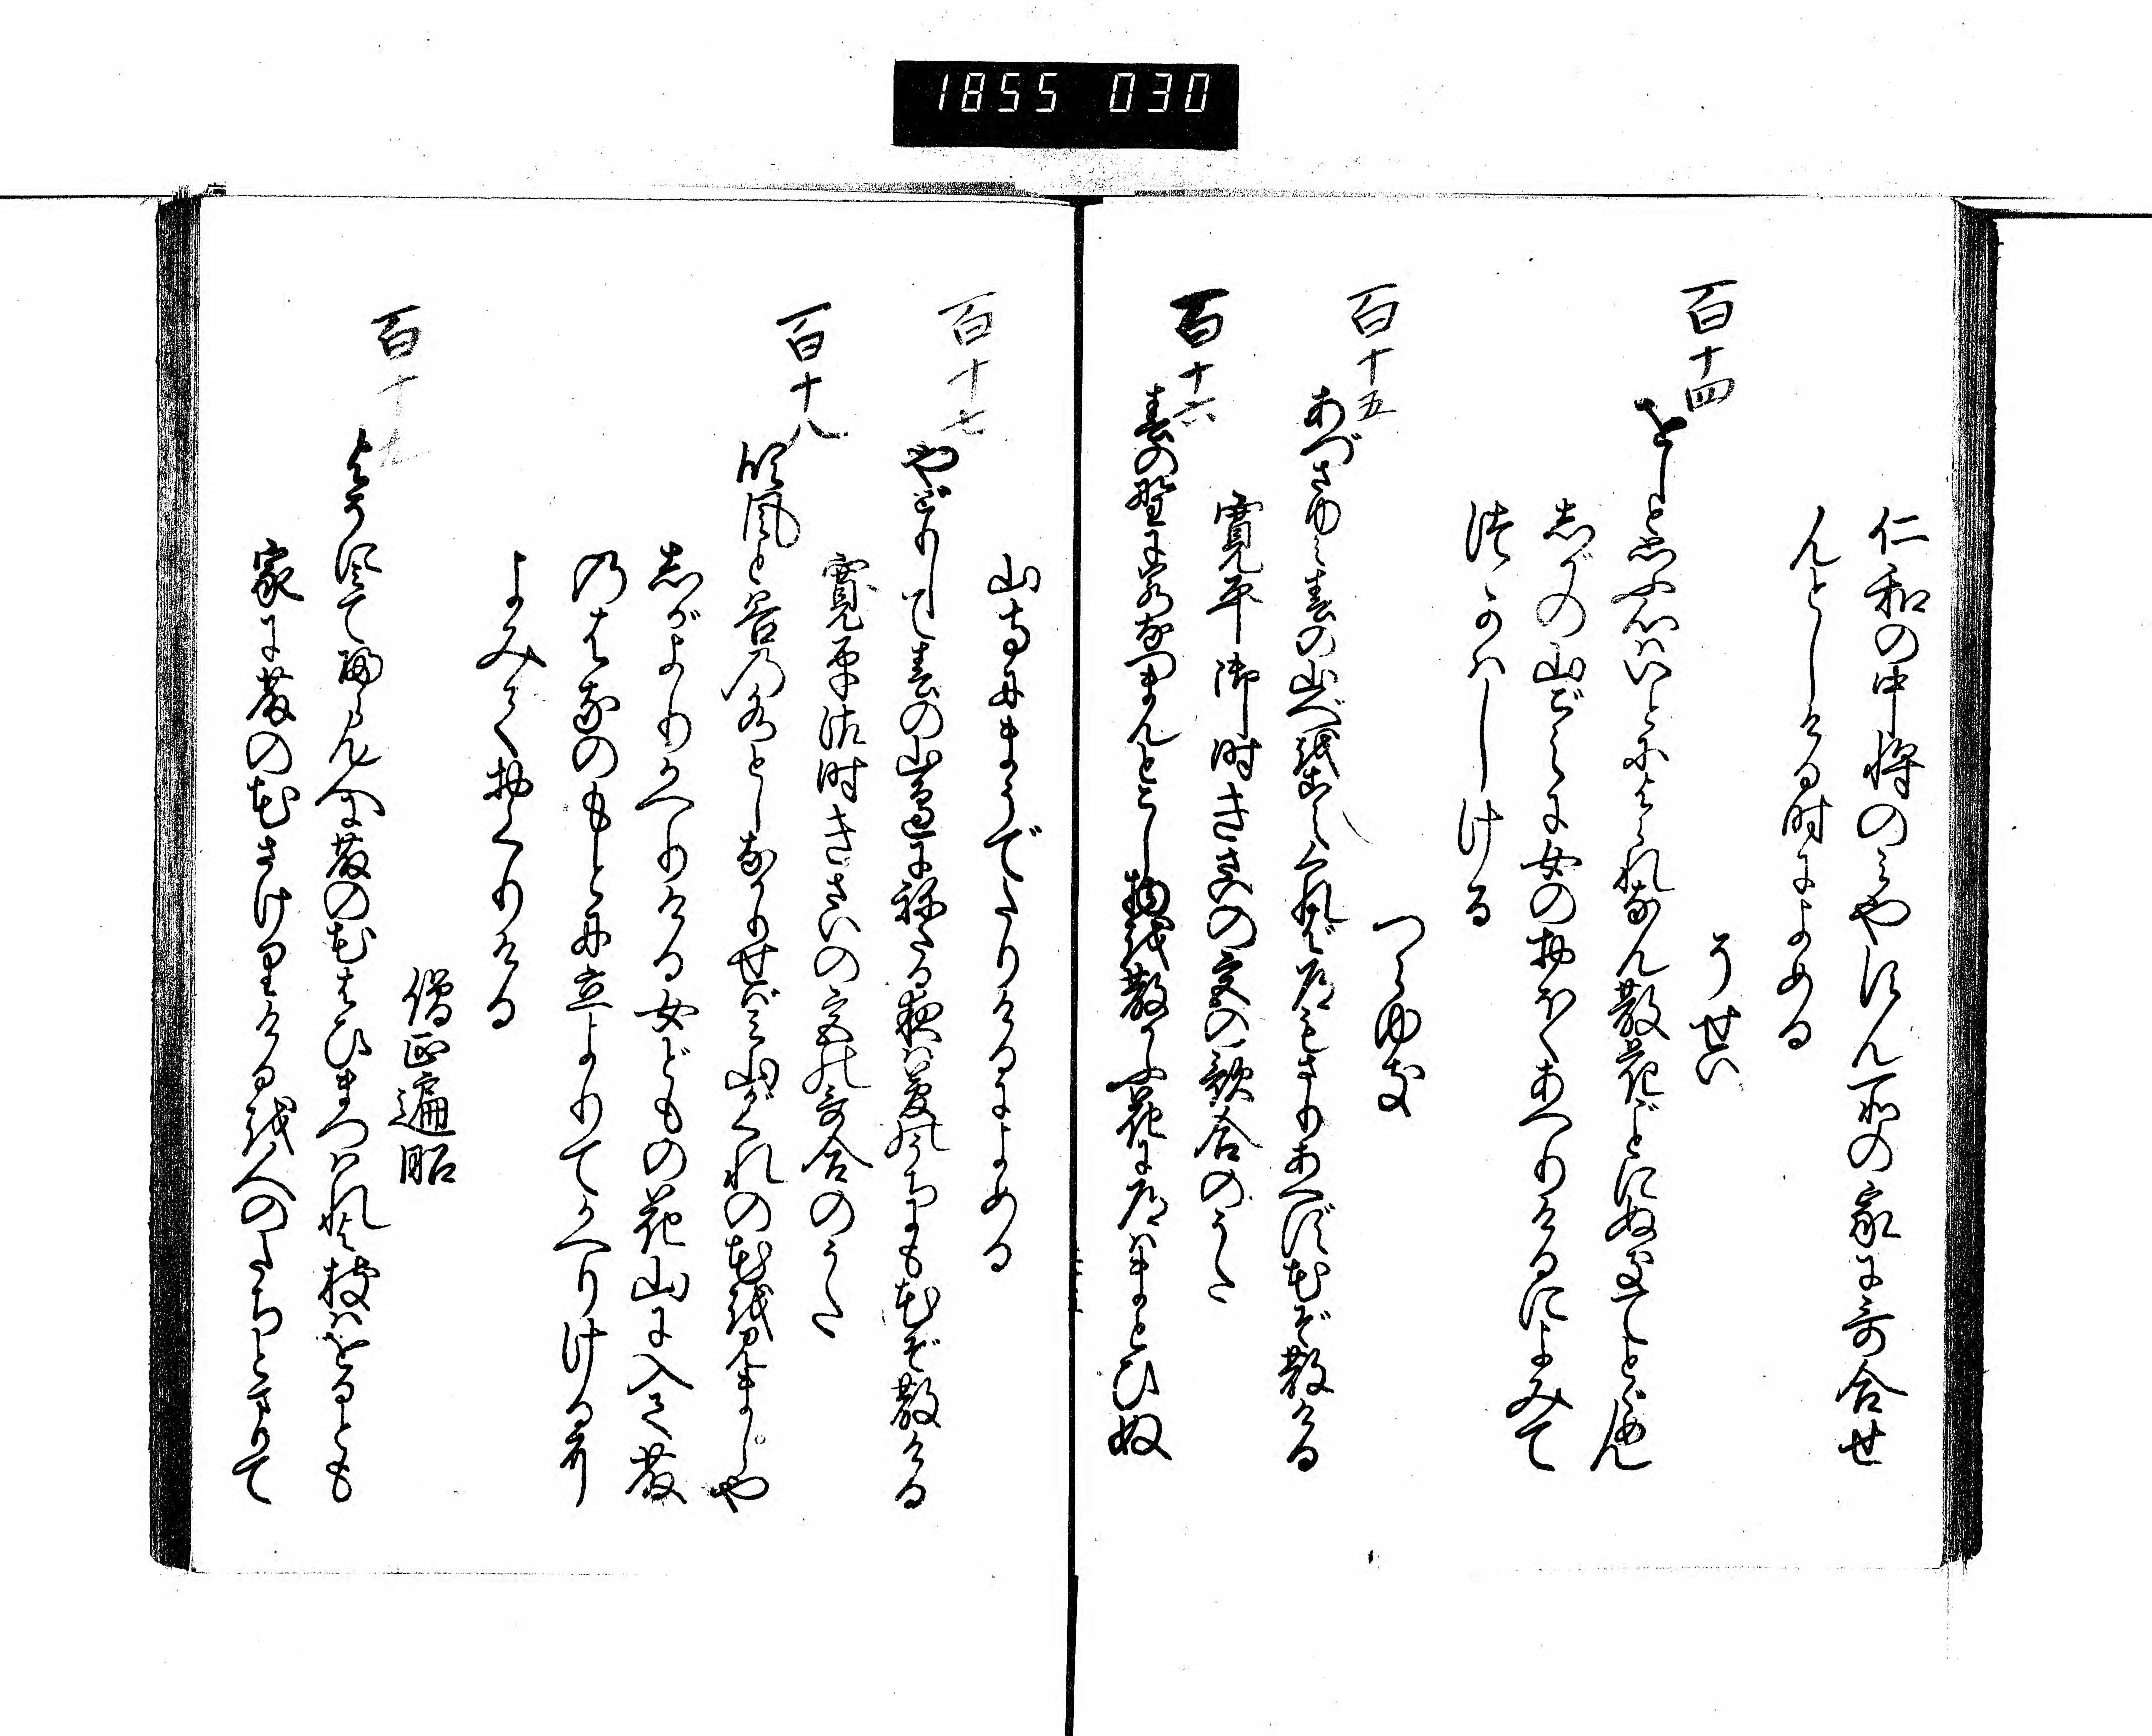 1855 030
仁和の中将のみやすん所の家に哥合せ
んとしける時によめる
そせい
百十四
をしと思ふ心はいとによられなん散花ごとにぬきてとゞめん
志がの山ごえに女のおほくあへりけるによみて
つかはしける
つらゆき
百十五
あづさゆみ春の山べを越くれば道もさりあへず花ぞ散ける
寛平御時きさいの宮の歌合のうた
百十六
春の野にわかなつまんとこし物を散かふ花に道はまどひぬ
山寺にまうでたりけるによめる
百十七
やどりして春の山邊に祢たる夜は夢の内にも花ぞ散ける
寛平御時きさいの宮の哥合のうた
百十八
吹風と谷の水としなかりせばみ山がくれの花を見ましや
志がよりかへりける女どもの花山に入て藤
のはなのもとに立よりてかへりけるに
よみておくりける
僧正遍昭
百十九
よそに見て帰らん人に藤の花はひまつはれよ枝はをるとも
家に藤の花さけりけるを人のたちとまりて